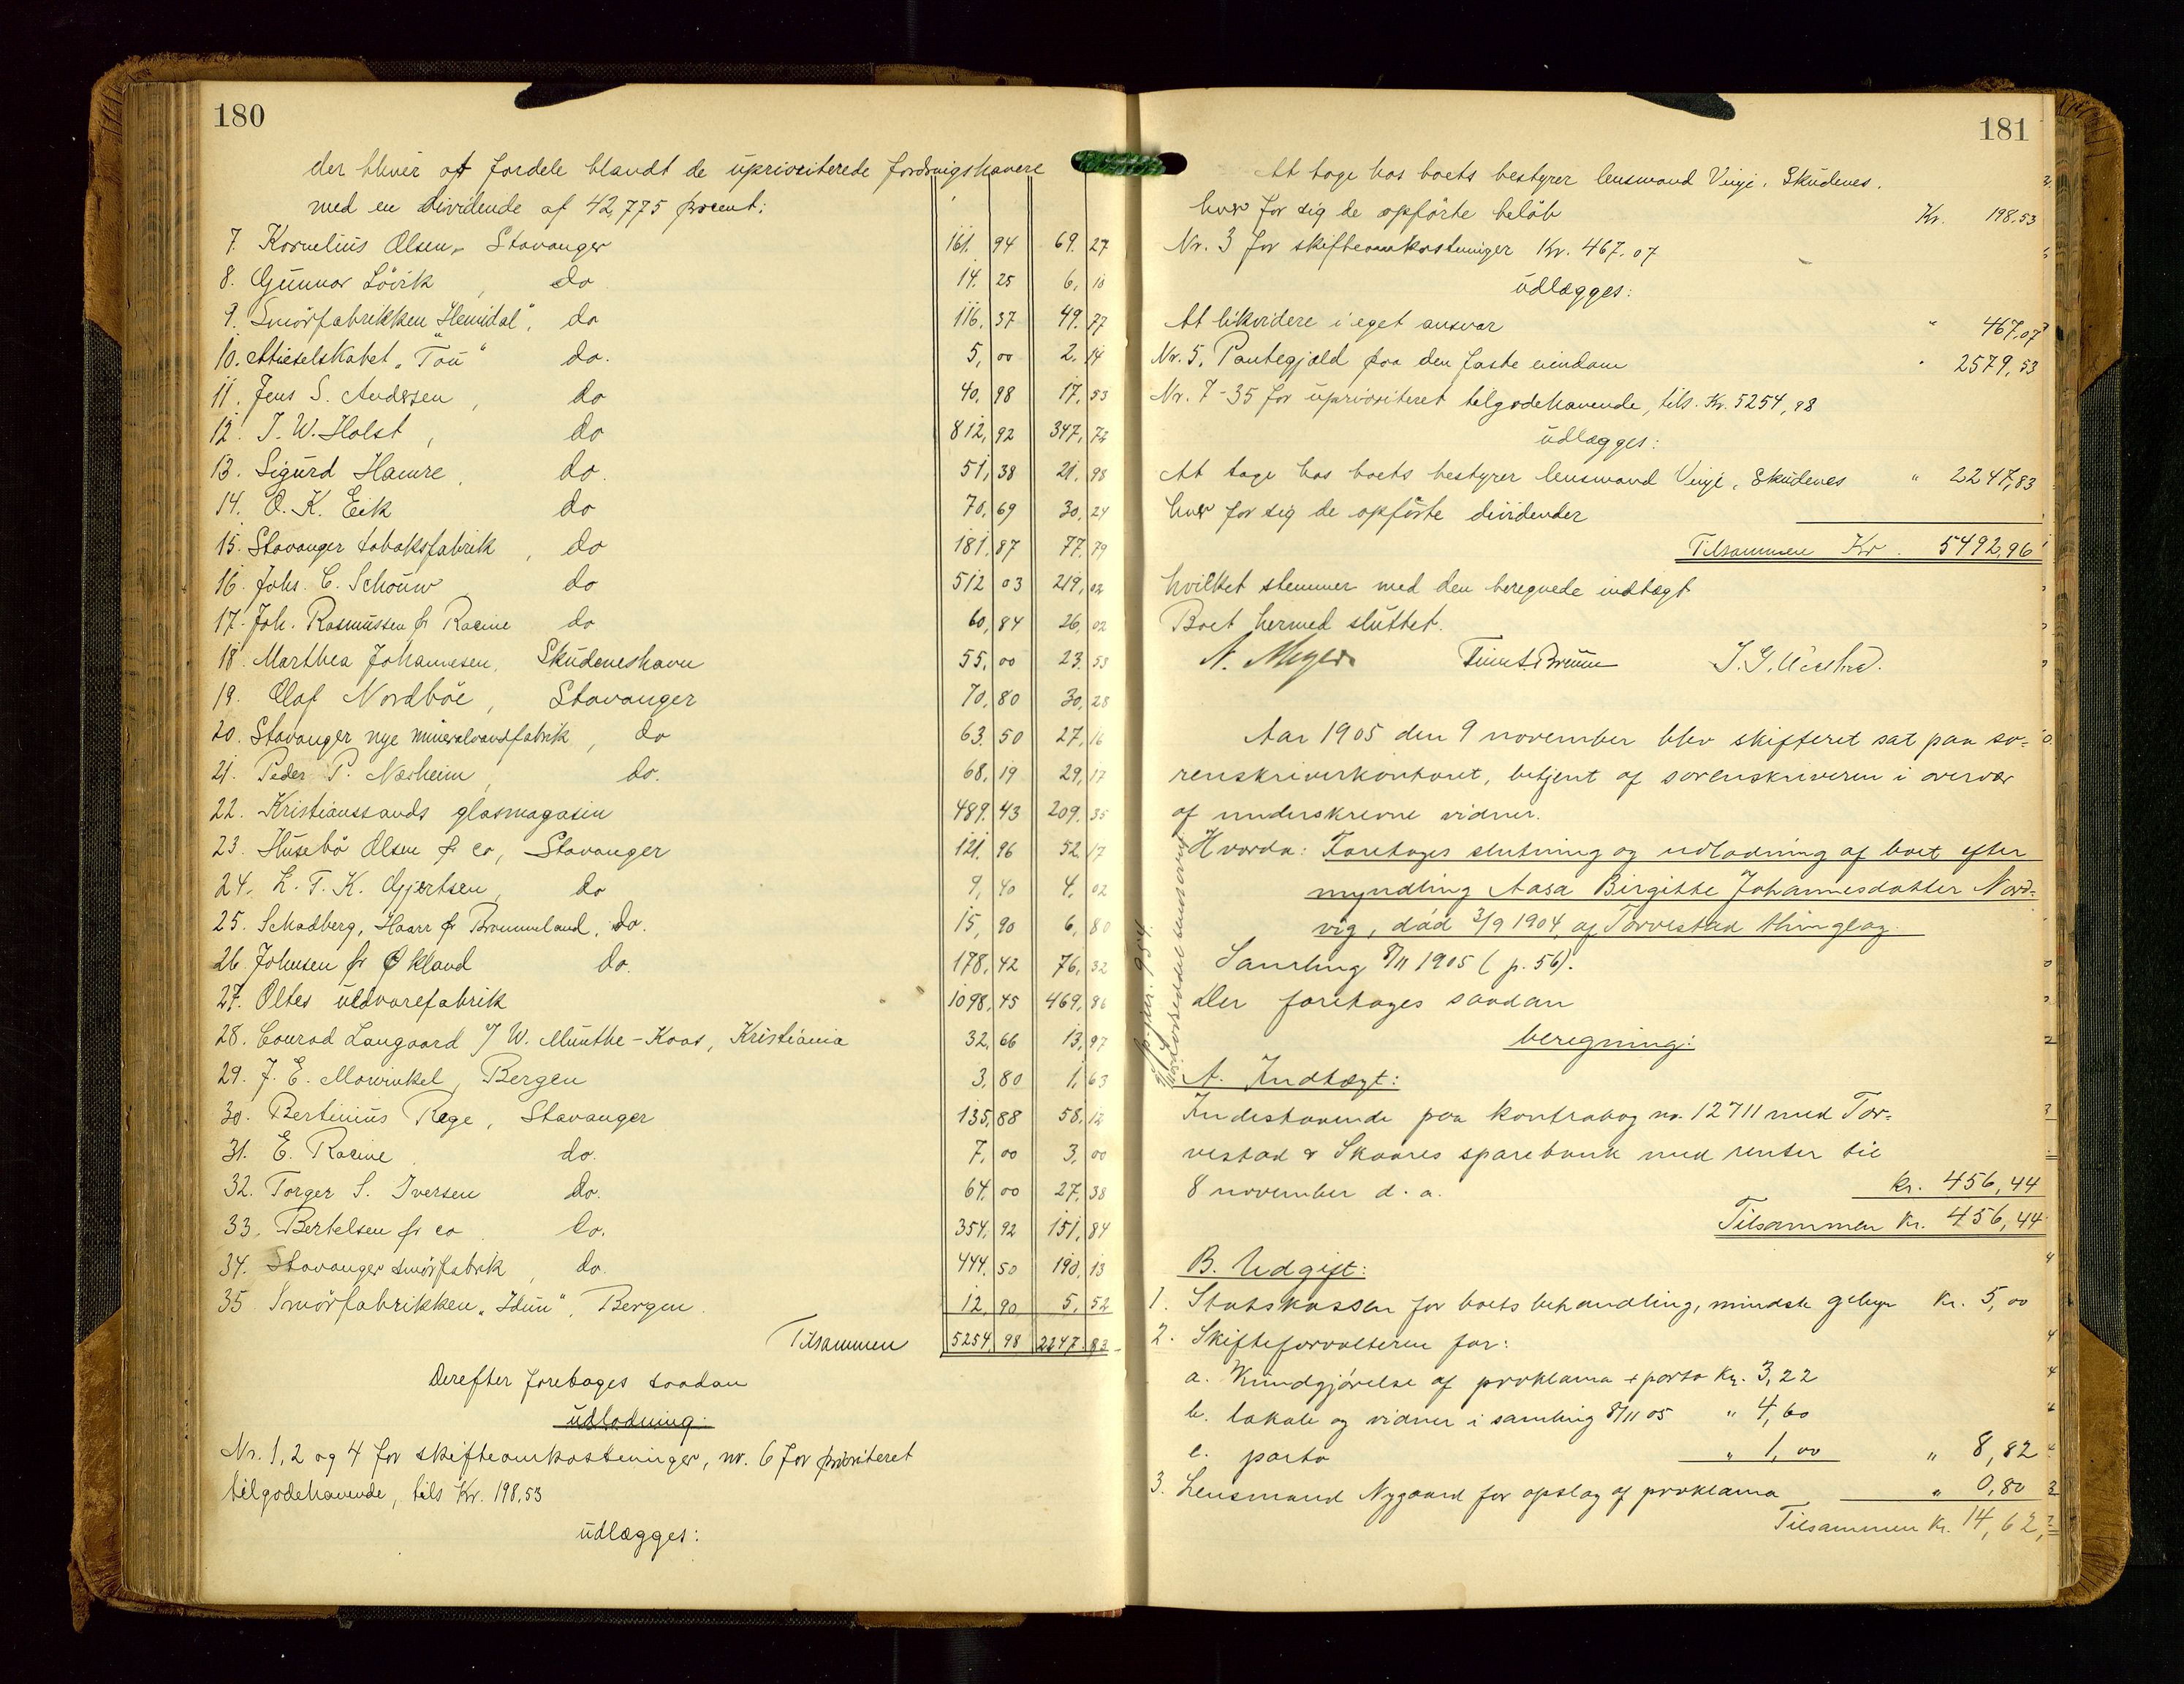 180
der bliver at fordele blandt de uprioriterede fordringshavere
med en dividende af 42,775 procent:
7. Kornelius Olsen, Stavanger 161,94 69,27
8. Gunnar Lövik, do 14,25 6,10
9. Smörfabrikken "Hemidal", do 116,37 49,77
10. Aktieselskabet "Tou" do. 5,00 2,14
11. Jens S. Andersen, do 40,98 17,53
12. I. W. Holst, do 812,92 347,72
13. Sigurd Hamre, do. 51,38 21,98
14. O. K. Eik do 70,69 30,24
15. Stavanger tobaksfabrik, do 181,87 77,79
16. Johs. C. Schouw do 512 03 219,02
17. Joh. Rasmussen & Racine do 60,84 26,02
18. Marthea Johannesen, Skudeneshavn 55,00 23,53
19. Olaf Nordböe, Stavanger 70,80 30,28
20. Stavanger nye mineralvandfabrik, do 63,50 27,16
21. Peder P. Næsheim, do. 68,19 29,17
22. Kristianssands glasmagasin 489,43 209,35
23. Husebö Olsen & co, Stavanger 121,96 52,17
24. L. T. K. Gjertsen, do 9,40 4,02
25. Schadberg, Haarr & Brommeland, do. 15,90 6,80
26. Johnsen & Økland do. 178,42 76,32
27. Oltes uldvarefabrik 1098,45 469,86
28. Conrad Langaard v/ W. Munthe-Kaas, Kristiania 32,66 13,97
29. J. E. Mowinkel, Bergen 3,80 1,63
30. Bertinius Rege, Stavanger 135,88 58,12
31. E. Racine do. 7,00 3,00
32. Torger S. Iversen do. 64,00 27,38
33. Bertelsen & co do. 354,92 151,84
34. Stavanger smörfabrik, do. 444,50 190,13
35 Smörfabrikken "Idun", Bergen. 12,90 5,52
Tilsammen 5254,98 2247,83
Derefter foretages saadan
udlodning:
Nr. 1, 2 og 4 for skifteomkostninger, nr. 6 for prioriteret
tilgodehavende, tils Kr. 198,53
udlægges:
181
At tage hos boets bestyrer lensmand Vinje, Skudenes.
hver for sig de opförte belöb Kr. 198,53
Nr. 3 for skifteomkostninger Kr. 467,07
udlægges:
At likvidere i eget ansvar " 467,07
Nr. 5. Pantegjæld paa den faste eiendom " 2579,53
Nr. 7-35 for uprioriteret tilgodehavende, tils. Kr. 5254,98
udlægges:
At tage hos boets bestyrer lensmand Vinje, Skudenes " 2247,83
hver for sig de opförte dividender
Tilsammen Kr. 5492,96
hvilket stemmer med den beregnede indtægt
Boet hermed sluttet.
N. Meyer
Aar 1905 den 9 november blev skifteret sat paa so=
renskriverkontoret, betjent af sorenskriveren i overvær
af underskrevne vidner.
Hvorda: Foretages slutning og udlodning af boet efter
myndling Aasa Birgitte Johannesdatter Nord=
vig, död 3/9 1904, af Torvestad thinglag.
Samling 8/11 1905 (p. 56).
Der foretages saadan
beregning:
A. Indtægt:
Indestaaende paa kontrabog no. 12711 med Tor=
vestad & Skaares sparebank med renter til
8 november d. a. kr. 456,44
Tilsammen kr. 456,44
B. Udgift:
1. Statskassen for boets behandling, mindste gebyr kr. 5,00
2. Skifteforvalteren for:
a. Kundgjörelse af proklama + porto kr. 3,22
b. lokale og vidner i samling 8/11 05 " 4,60
c. porto " 1,00 " 8,82
3. Lensmand Nygaard for opslag af proklama " 0,80
Tilsammen kr. 14,62